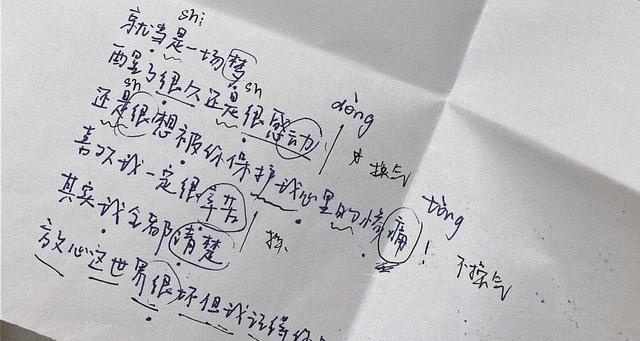 shi
就当是一场梦
醒了很久还是很感动
sh sh
还是很想被你保护我心里的惨痛！
dòng
换气
喜欢我一定很辛苦
tòng
其实我全部清楚
换
不换气
放心这世界很坏但我记得你